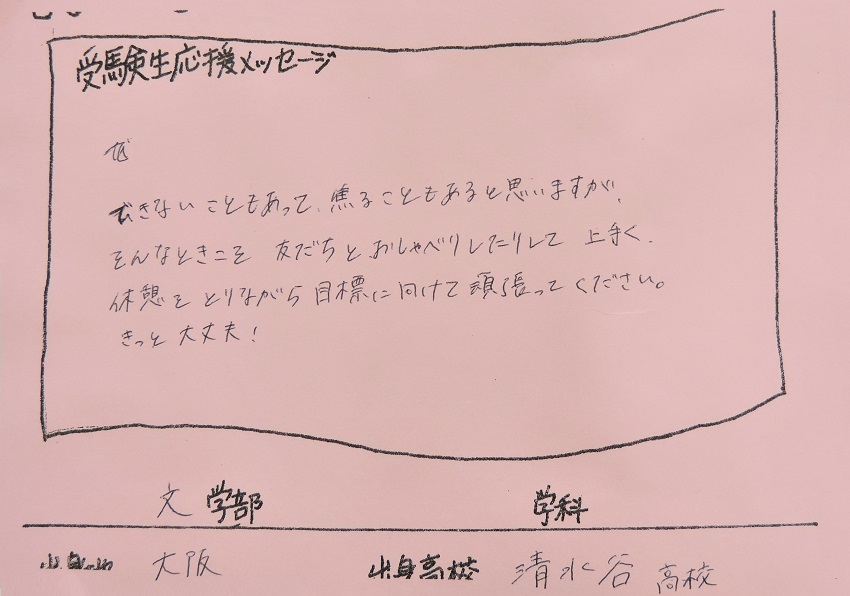 受験生応援メッセージ
ぜ
できないこともあって、焦ることもあると思いますが、
そんなときこそ 友だちと おしゃべりしたりして 上手く
休憩を とりながら 目標に向けて 頑張ってください。
きっと 大丈夫!
文 学部 学科
大阪 出身高校 清水谷 高校